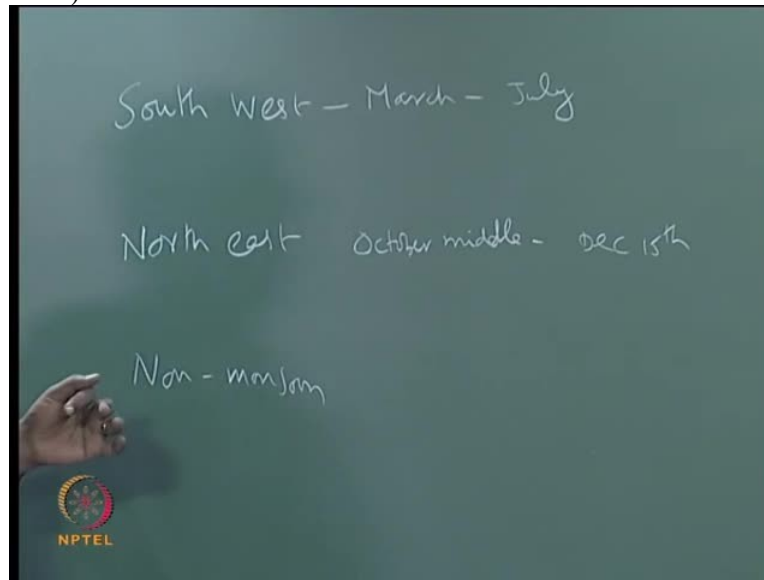 South West - March - July
North east October middle - Dec 15th
Non - monsoon
NPTEL